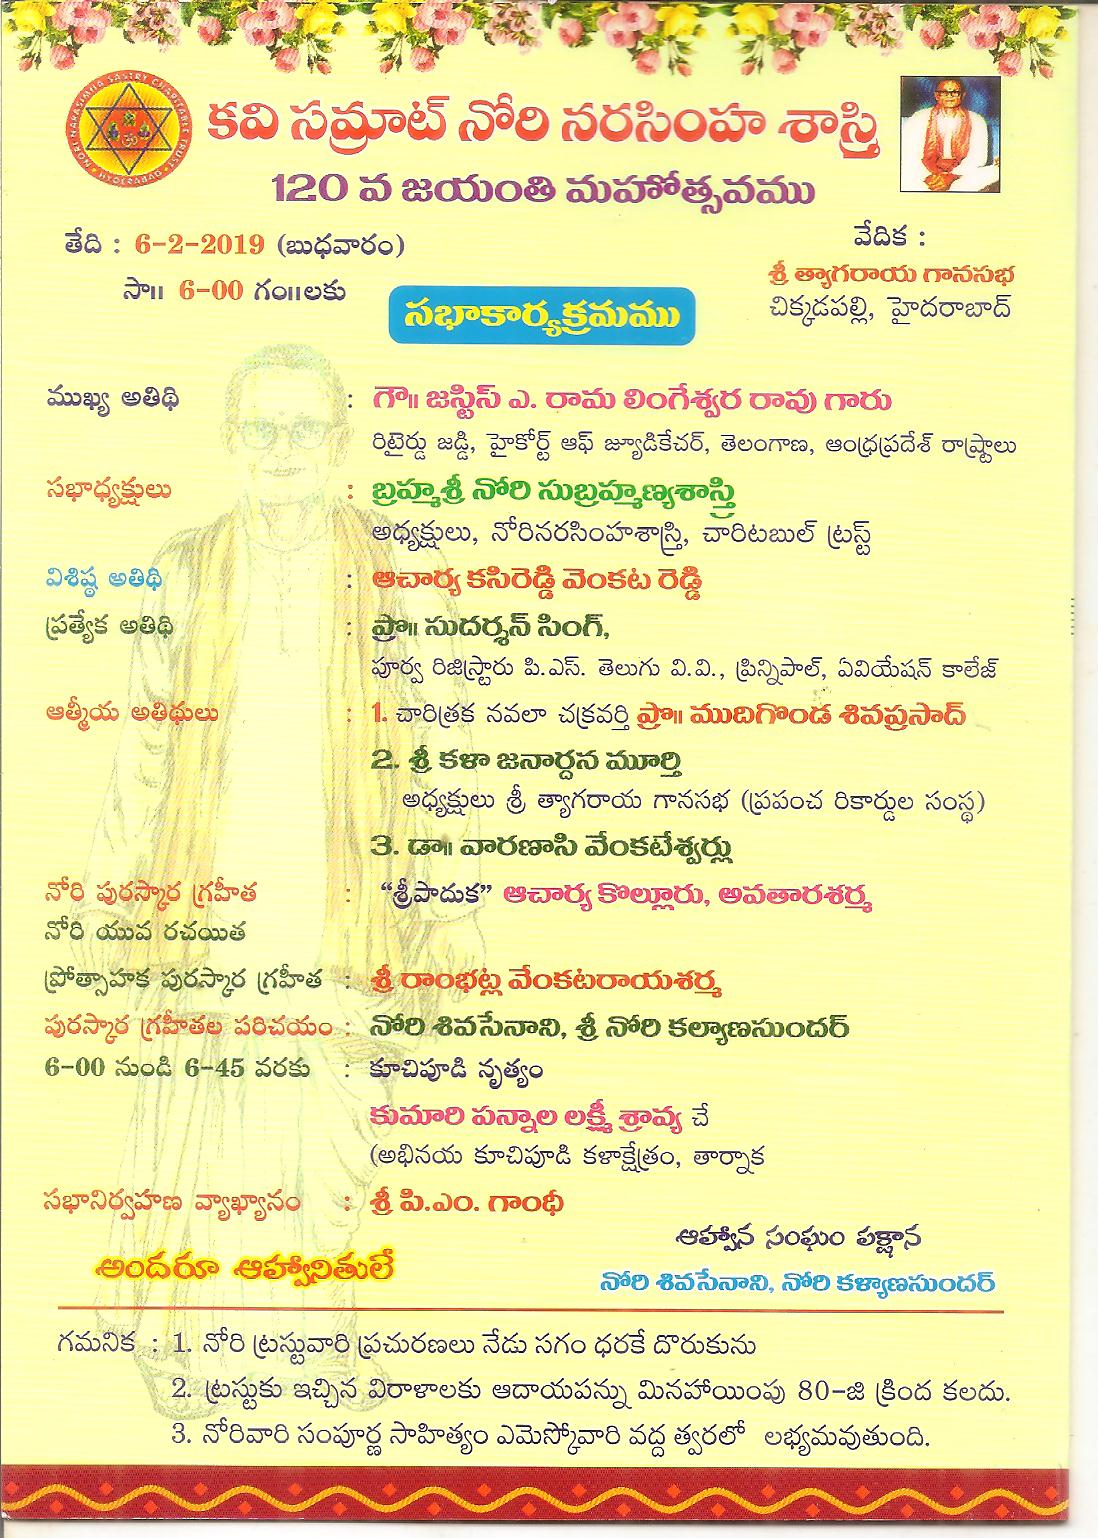 NORI NARASIMHA SASTRY CHARITABLE TRUST
HYDERABAD
కవి సమ్రాట్ నోరి నరసింహ శాస్త్రి
120 వ జయంతి మహోత్సవము
తేది : 6-2-2019 (బుధవారం)
సా॥ 6-00 గం॥లకు
వేదిక :
శ్రీ త్యాగరాయ గానసభ
చిక్కడపల్లి, హైదరాబాద్
సభాకార్యక్రమము
ముఖ్య అతిథి : గౌ॥ జస్టిస్ ఎ. రామ లింగేశ్వర రావు గారు
రిటైర్డు జడ్జి, హైకోర్ట్ ఆఫ్ జ్యూడికేచర్, తెలంగాణ, ఆంధ్రప్రదేశ్ రాష్ట్రాలు
సభాధ్యక్షులు : బ్రహ్మశ్రీ నోరి సుబ్రహ్మణ్యశాస్త్రి
అధ్యక్షులు, నోరినరసింహశాస్త్రి, చారిటబుల్ ట్రస్ట్
విశిష్ఠ అతిథి : ఆచార్య కసిరెడ్డి వెంకట రెడ్డి
ప్రత్యేక అతిథి : ప్రొ॥ సుదర్శన్ సింగ్,
పూర్వ రిజిస్ట్రారు పి.ఎస్. తెలుగు వి.వి., ప్రిన్సిపాల్, ఏవియేషన్ కాలేజ్
ఆత్మీయ అతిథులు : 1. చారిత్రక నవలా చక్రవర్తి ప్రొ॥ ముదిగొండ శివప్రసాద్
2. శ్రీ కళా జనార్దన మూర్తి
అధ్యక్షులు శ్రీ త్యాగరాయ గానసభ (ప్రపంచ రికార్డుల సంస్థ)
3. డా॥ వారణాసి వేంకటేశ్వర్లు
నోరి పురస్కార గ్రహీత : “శ్రీపాదుక” ఆచార్య కొల్లూరు, అవతారశర్మ
నోరి యువ రచయిత
ప్రోత్సాహక పురస్కార గ్రహీత : శ్రీ రాంభట్ల వేంకటరాయశర్మ
పురస్కార గ్రహీతల పరిచయం : నోరి శివసేనాని, శ్రీ నోరి కల్యాణసుందర్
6-00 నుండి 6-45 వరకు : కూచిపూడి నృత్యం
కుమారి పన్నాల లక్ష్మీ శ్రావ్య చే
(అభినయ కూచిపూడి కళాక్షేత్రం, తార్నాక
సభానిర్వహణ వ్యాఖ్యానం : శ్రీ పి.ఎం. గాంధీ
ఆహ్వాన సంఘం పక్షాన
అందరూ ఆహ్వానితులే
నోరి శివసేనాని, నోరి కళ్యాణసుందర్
గమనిక : 1. నోరి ట్రస్టువారి ప్రచురణలు నేడు సగం ధరకే దొరుకును
2. ట్రస్టుకు ఇచ్చిన విరాళాలకు ఆదాయపన్ను మినహాయింపు 80-జి క్రింద కలదు.
3. నోరివారి సంపూర్ణ సాహిత్యం ఎమెస్కోవారి వద్ద త్వరలో లభ్యమవుతుంది.